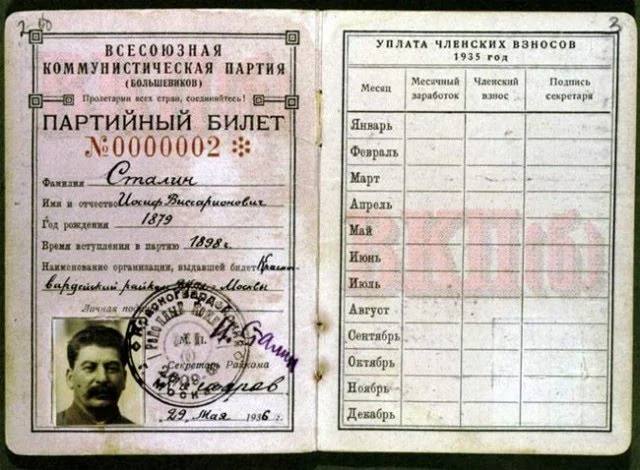 ВСЕСОЮЗНАЯ
КОММУНИСТИЧЕСКАЯ ПАРТИЯ
(БОЛЬШЕВИКОВ)
Пролетарии всех стран, соединяйтесь!
ПАРТИЙНЫЙ БИЛЕТ
№0000002
Фамилия Сталин
Имя и отчество Иосиф Виссарионович
Год рождения 1879
Время вступления в партию 1898 г.
Наименование организации, выдавшей билет Красно-
вардейский райком г. Москвы
Личная
И. Сталин
М. П.
Секретарь Райкома
МОСКВА
29 Мая 1936 г.
3
УПЛАТА ЧЛЕНСКИХ ВЗНОСОВ
1935 год
Месяц Месячный заработок Членский взнос Подпись секретаря
Январь
Февраль
Март
Апрель
Май
Июнь
Июль
Август
Сентябрь
Октябрь
Ноябрь
Декабрь
ВКП(б)